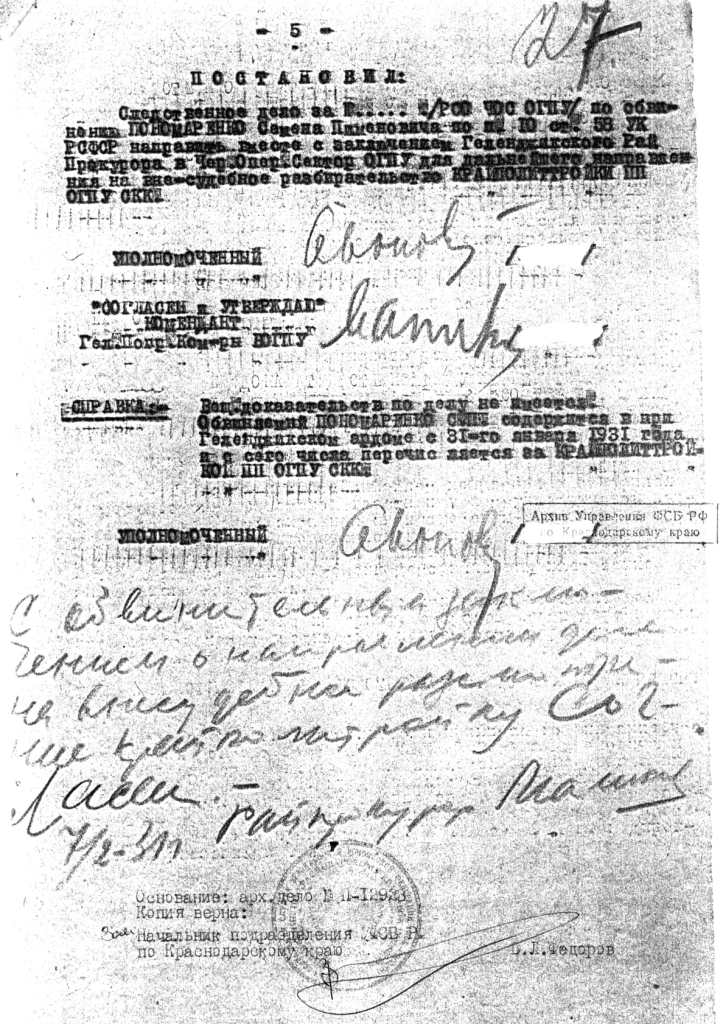 - 5 -
27
ПОСТАНОВИЛ:
Следственное дело за №..... /РСО ЧОС ОГПУ/ по обви-
нению ПОНОМАРЕНКО Семена Пименовича по п. 10 ст. 58 УК
РСФСР направить вместе с заключением Геленджикского Рай
Прокурора в Чер.Опер.Сектор ОГПУ для дальнейшего направлен-
ния на вне-судебное разбирательство КРАЙПОЛИТТРОЙКИ ПП
ОГПУ СККД
УПОЛНОМОЧЕННЫЙ / /
"СОГЛАСЕН и УТВЕРЖДАЮ"
КОМЕНДАНТ
Гел.Погр.Ком-ры ОГПУ / /
СПРАВКА:- Вещ.доказательств по делу не имеется.
Обвиняемый ПОНОМАРЕНКО содержится в при
Геленджикском ардоме с 31-го января 1931 года
и с сего числа перечисляется за КРАЙПОЛИТТРОЙ-
КОЙ ПП ОГПУ СККД
Архив Управления ФСБ РФ
по Краснодарскому краю
УПОЛНОМОЧЕННЫЙ / /
С обвинительным заклю-
чением о направлении дела
на внесудебное рассмотре-
ние крайполиттройку Сог-
ласен. -
Райпрокурор
7/2-31г
Основание: арх.дело № П-12923
Копия верна:
Зам Начальник подразделения ФСБ Р
по Краснодарскому краю В.Л.Федоров